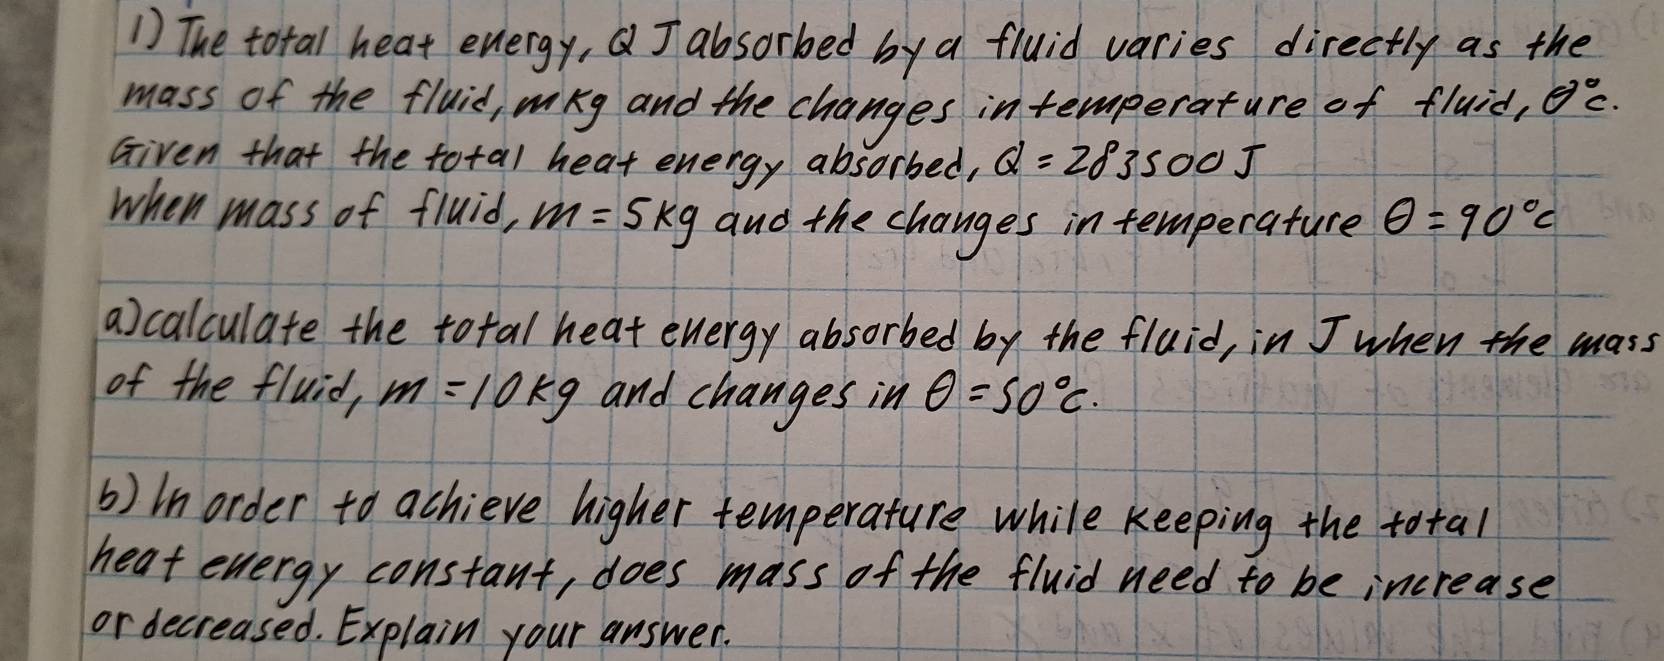 1) The total heat energy, Q J absorbed by a fluid varies directly as the
mass of the fluid, m kg and the changes in temperature of fluid, θ°c.
Given that the total heat energy absorbed, Q = 283500 J
When mass of fluid, m = 5kg and the changes in temperature θ = 90°c
a) calculate the total heat energy absorbed by the fluid, in J when the mass
of the fluid, m = 10kg and changes in θ = 50°c.
b) In order to achieve higher temperature while keeping the total
heat energy constant, does mass of the fluid need to be increase
or decreased. Explain your answer.